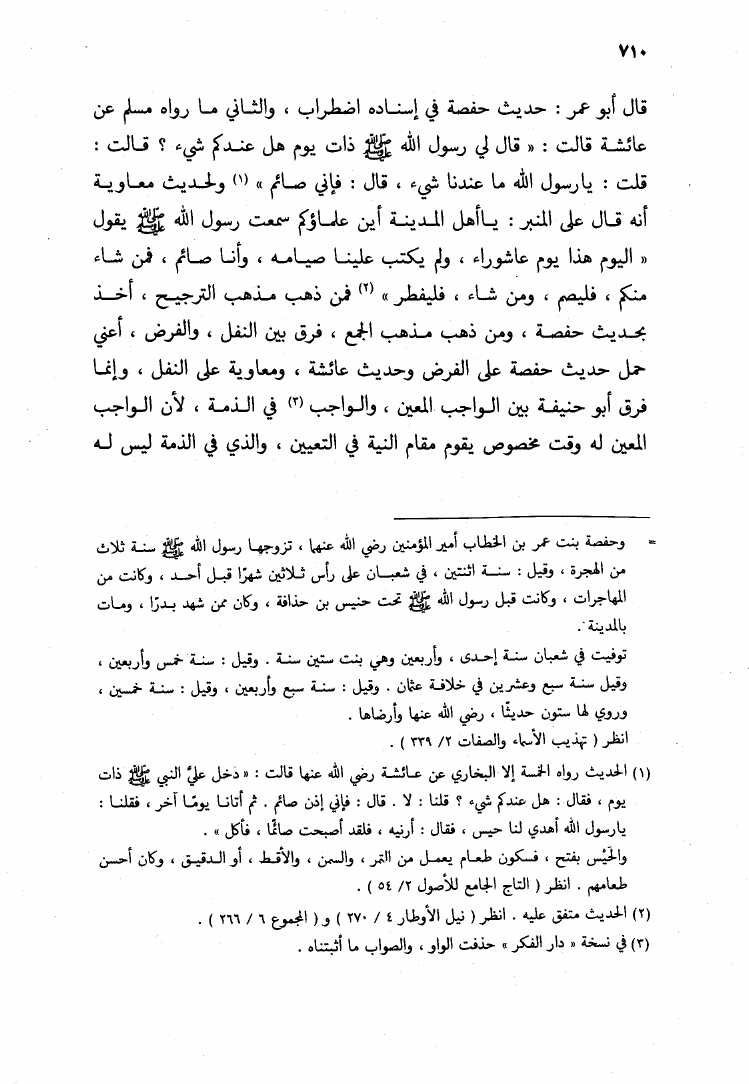 ٧١٠
قال أبو عمر : حديث حفصة في إسناده اضطراب ، والثاني ما رواه مسلم عن
عائشة قالت : « قال لي رسول الله ﷺ ذات يوم هل عندكم شيء ؟ قالت :
قلت : يارسول الله ما عندنا شيء ، قال : فإني صائم » (١) ولحديث معاوية
أنه قال على المنبر : ياأهل المدينة أين علماؤكم سمعت رسول الله ﷺ يقول
« اليوم هذا يوم عاشوراء ، ولم يكتب علينا صيامه ، وأنا صائم ، فمن شاء
منكم ، فليصم ، ومن شاء ، فليفطر » (٢) فمن ذهب مذهب الترجيح ، أخذ
بحديث حفصة ، ومن ذهب مذهب الجمع ، فرق بين النفل ، والفرض ، أعني
حمل حديث حفصة على الفرض وحديث عائشة ، ومعاوية على النفل ، وإنما
فرق أبو حنيفة بين الواجب المعين ، والواجب (٣) في الذمة ، لأن الواجب
المعين له وقت مخصوص يقوم مقام النية في التعيين ، والذي في الذمة ليس له
= وحفصة بنت عمر بن الخطاب أمير المؤمنين رضي الله عنهما ، تزوجها رسول الله ﷺ سنة ثلاث
من الهجرة ، وقيل : سنة اثنتين ، في شعبان على رأس ثلاثين شهرًا قبل أحد ، وكانت من
المهاجرات ، وكانت قبل رسول الله ﷺ تحت حنيس بن حذافة ، وكان ممن شهد بدرًا ، ومات
بالمدينة .
توفيت في شعبان سنة إحدى ، وأربعين وهي بنت ستين سنة . وقيل : سنة خمس وأربعين ،
وقيل سنة سبع وعشرين في خلافة عثمان . وقيل : سنة سبع وأربعين ، وقيل : سنة خمسين ،
وروي لها ستون حديثًا ، رضي الله عنها وأرضاها .
انظر ( تهذيب الأسماء والصفات ٢/ ٣٣٩ ) .
(١) الحديث رواه الخمسة إلا البخاري عن عائشة رضي الله عنها قالت : « دخل عليّ النبي ﷺ ذات
يوم ، فقال : هل عندكم شيء ؟ قلنا : لا . قال : فإني إذن صائم . ثم أتانا يومًا آخر ، فقلنا :
يارسول الله أهدي لنا حيس ، فقال : أرنيه ، فلقد أصبحت صائمًا ، فأكل » .
والحَيْس بفتح ، فسكون طعام يعمل من التمر ، والسمن ، والأقط ، أو الدقيق ، وكان أحسن
طعامهم . انظر ( التاج الجامع للأصول ٢/ ٥٤ ) .
(٢) الحديث متفق عليه . انظر ( نيل الأوطار ٤ / ٢٧٠ ) و ( المجموع ٦ / ٢٦٦ ) .
(٣) في نسخة « دار الفكر » حذفت الواو ، والصواب ما أثبتناه .